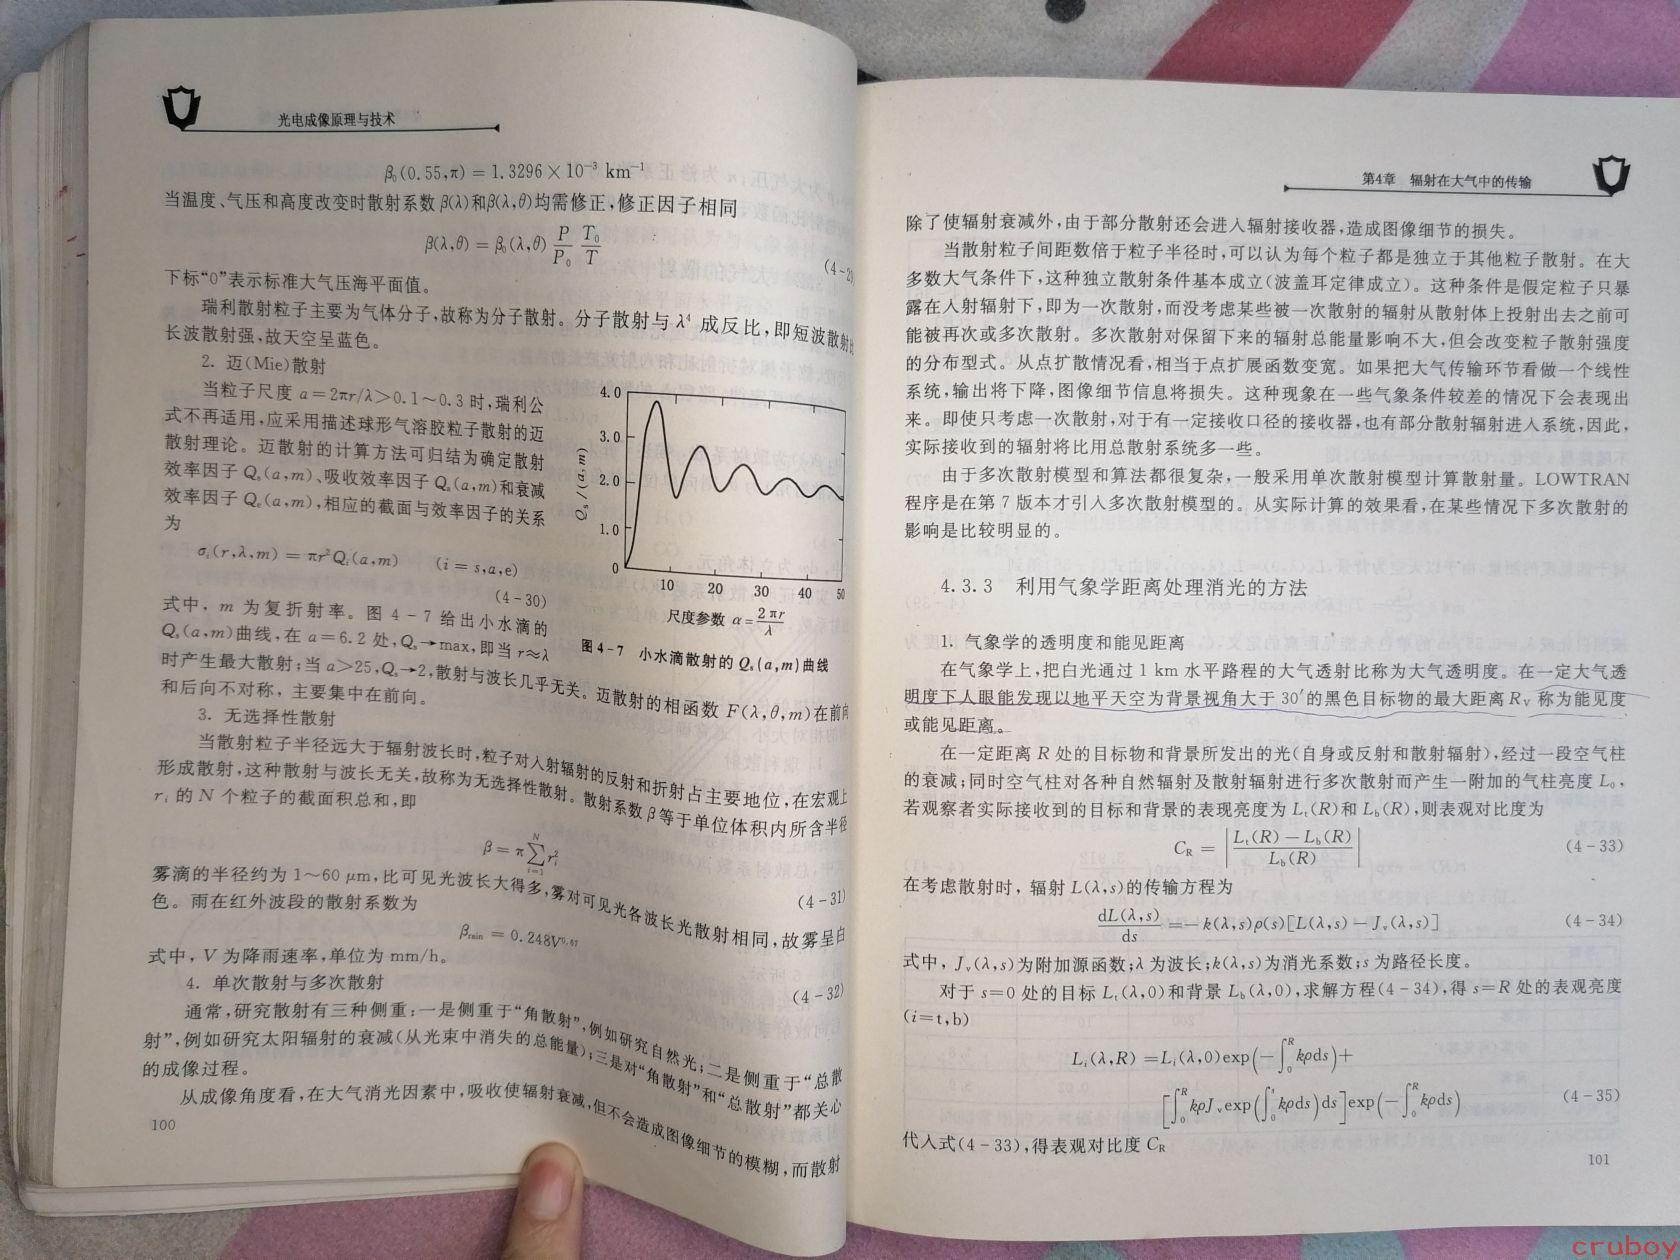 光电成像原理与技术
β₀(0.55,π) = 1.3296×10⁻³ km⁻¹
当温度、气压和高度改变时散射系数 β(λ)和β(λ,θ)均需修正,修正因子相同
β(λ,θ) = β₀(λ,θ) P/P₀ T₀/T
(4-29)
下标“0”表示标准大气压海平面值。
瑞利散射粒子主要为气体分子,故称为分子散射。分子散射与 λ⁴ 成反比,即短波散射比
长波散射强,故天空呈蓝色。
2. 迈(Mie)散射
当粒子尺度 a=2πr/λ>0.1~0.3时,瑞利公
式不再适用,应采用描述球形气溶胶粒子散射的迈
散射理论。迈散射的计算方法可归结为确定散射
效率因子 Qₛ(a,m)、吸收效率因子 Qₐ(a,m)和衰减
效率因子 Qₑ(a,m),相应的截面与效率因子的关系
为
σᵢ(r,λ,m) = πr²Qᵢ(a,m) (i = s,a,e)
(4-30)
式中, m 为复折射率。图 4-7 给出小水滴的
Qₛ(a,m)曲线,在 a=6.2 处,Qₛ→max,即当 r≈λ
时产生最大散射;当 a>25,Qₛ→2,散射与波长几乎无关。迈散射的相函数 F(λ,θ,m)在前向
和后向不对称, 主要集中在前向。
4.0
3.0
2.0
1.0
0
Qₛ/(a,m)
10 20 30 40 50
尺度参数 α=2πr/λ
图4-7 小水滴散射的 Qₛ(a,m)曲线
3. 无选择性散射
当散射粒子半径远大于辐射波长时,粒子对入射辐射的反射和折射占主要地位,在宏观上
形成散射,这种散射与波长无关,故称为无选择性散射。散射系数 β等于单位体积内所含半径
rᵢ 的 N 个粒子的截面积总和,即
β = π∑ᵢ₌₁ᴺ rᵢ²
(4-31)
雾滴的半径约为 1~60 μm,比可见光波长大得多,雾对可见光各波长光散射相同,故雾呈白
色。雨在红外波段的散射系数为
β_rain = 0.248V^0.67
(4-32)
式中, V 为降雨速率,单位为 mm/h。
4. 单次散射与多次散射
通常,研究散射有三种侧重:一是侧重于“角散射”,例如研究自然光;二是侧重于“总散
射”,例如研究太阳辐射的衰减(从光束中消失的总能量);三是对“角散射”和“总散射”都关心
的成像过程。
从成像角度看,在大气消光因素中,吸收使辐射衰减,但不会造成图像细节的模糊,而散射
100
第4章 辐射在大气中的传输
除了使辐射衰减外,由于部分散射还会进入辐射接收器,造成图像细节的损失。
当散射粒子间距数倍于粒子半径时,可以认为每个粒子都是独立于其他粒子散射。在大
多数大气条件下,这种独立散射条件基本成立(波盖耳定律成立)。这种条件是假定粒子只暴
露在入射辐射下,即为一次散射,而没考虑某些被一次散射的辐射从散射体上投射出去之前可
能被再次或多次散射。多次散射对保留下来的辐射总能量影响不大,但会改变粒子散射强度
的分布型式。从点扩散情况看,相当于点扩展函数变宽。如果把大气传输环节看做一个线性
系统,输出将下降,图像细节信息将损失。这种现象在一些气象条件较差的情况下会表现出
来。即使只考虑一次散射,对于有一定接收口径的接收器,也有部分散射辐射进入系统,因此,
实际接收到的辐射将比用总散射系统多一些。
由于多次散射模型和算法都很复杂,一般采用单次散射模型计算散射量。LOWTRAN
程序是在第 7 版本才引入多次散射模型的。从实际计算的效果看,在某些情况下多次散射的
影响是比较明显的。
4.3.3 利用气象学距离处理消光的方法
1. 气象学的透明度和能见距离
在气象学上,把白光通过 1 km 水平路程的大气透射比称为大气透明度。在一定大气透
明度下人眼能发现以地平天空为背景视角大于 30′的黑色目标物的最大距离 Rᵥ 称为能见度
或能见距离。
在一定距离 R 处的目标物和背景所发出的光(自身或反射和散射辐射),经过一段空气柱
的衰减;同时空气柱对各种自然辐射及散射辐射进行多次散射而产生一附加的气柱亮度 L₀,
若观察者实际接收到的目标和背景的表现亮度为 Lₜ(R)和 L_b(R),则表观对比度为
C_R = |(Lₜ(R)-L_b(R))/L_b(R)| (4-33)
在考虑散射时, 辐射 L(λ,s)的传输方程为
dL(λ,s)/ds = -k(λ,s)ρ(s)[L(λ,s)-Jᵥ(λ,s)] (4-34)
式中, Jᵥ(λ,s)为附加源函数;λ 为波长;k(λ,s)为消光系数;s 为路径长度。
对于 s=0 处的目标 Lₜ(λ,0)和背景 L_b(λ,0),求解方程(4-34),得 s=R 处的表观亮度
(i=t,b)
Lᵢ(λ,R) =Lᵢ(λ,0)exp(-∫₀ᴿkρds)+
[∫₀ᴿkρJᵥexp(∫₀ˢkρds)ds]exp(-∫₀ᴿkρds) (4-35)
代入式(4-33),得表观对比度 C_R
101
cruboy